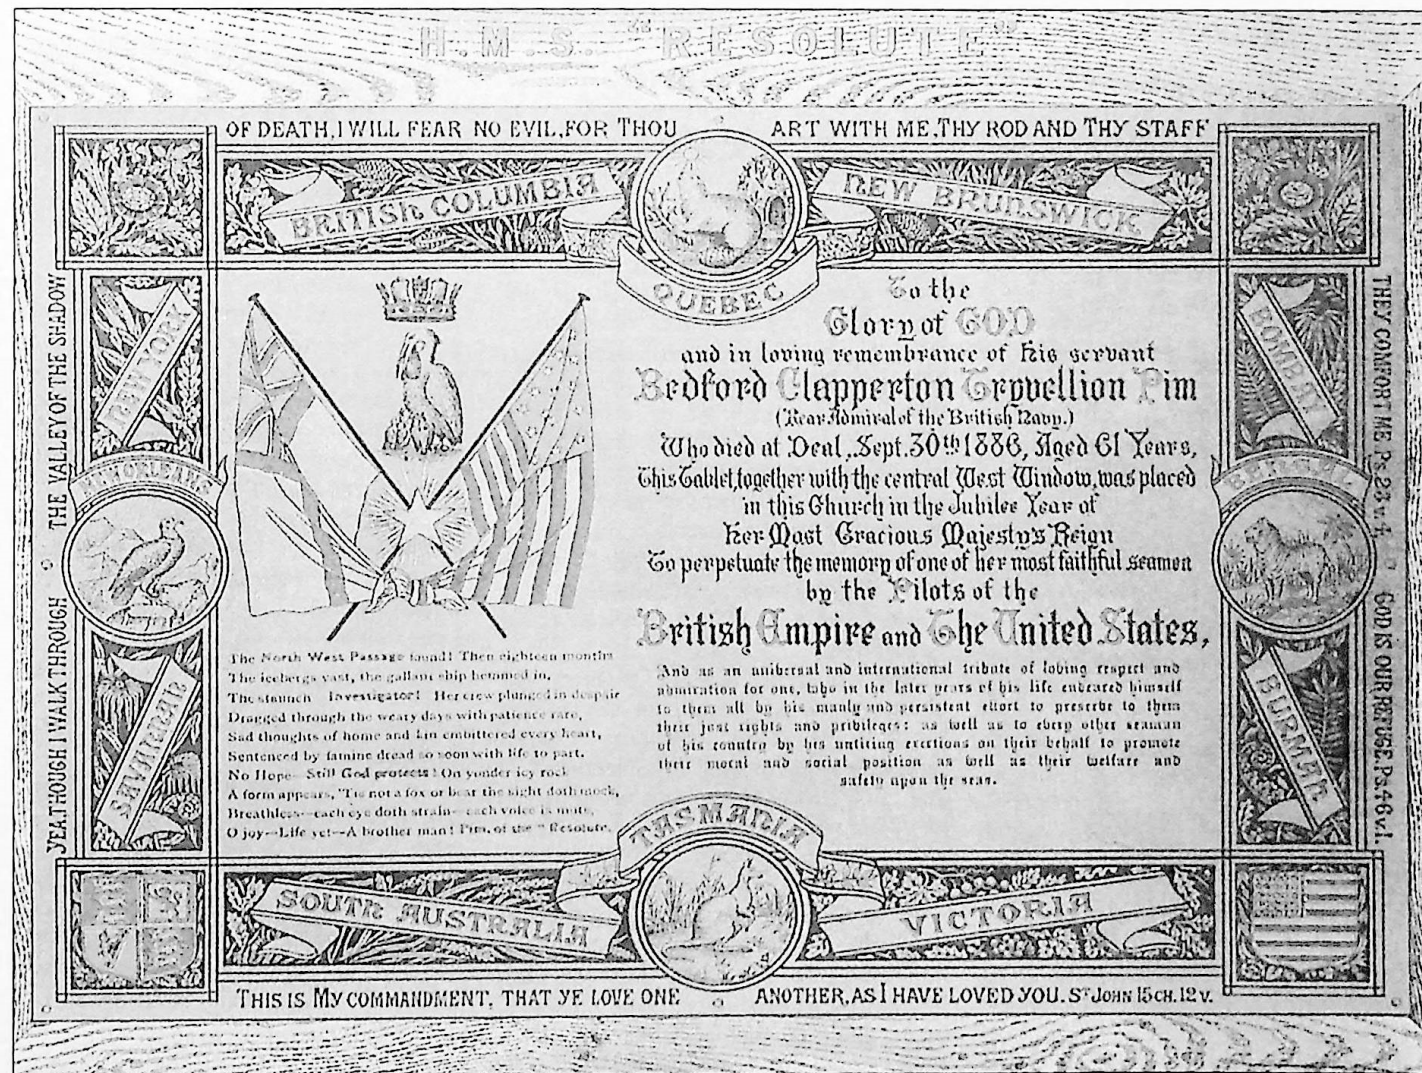 H.M.S. "RESOLUTE"
OF DEATH, I WILL FEAR NO EVIL, FOR THOU ART WITH ME, THY ROD AND THY STAFF
BRITISH COLUMBIA
NEW BRUNSWICK
QUEBEC
YEA THOUGH I WALK THROUGH THE VALLEY OF THE SHADOW
NEW YORK
NEW ORLEANS
SAVANNAH
To the
Glory of GOD
and in loving remembrance of his servant
Bedford Clapperton Tryvellion Pim
(Rear Admiral of the British Navy.)
Who died at Deal, Sept. 30th 1886, Aged 61 Years,
This Tablet, together with the central West Window, was placed
in this Church in the Jubilee Year of
Her Most Gracious Majesty's Reign
To perpetuate the memory of one of her most faithful seamen
by the Pilots of the
British Empire and The United States,
And as an universal and international tribute of loving respect and
admiration for one, who in the later years of his life endeared himself
to them all by his manly and persistent effort to preserve to them
their just rights and privileges: as well as to every other seaman
of his country by his untiring exertions on their behalf to promote
their moral and social position as well as their welfare and
safety upon the seas.
The North West Passage found! Then eighteen months
The icebergs vast, the gallant ship hemmed in,
The staunch Investigator! Her crew plunged in despair
Dragged through the weary days with patience rare,
Sad thoughts of home and kin embittered every heart,
Sentenced by famine dread so soon with life to part.
No Hope—Still God protects! On yonder icy rock
A form appears, 'Tis not a fox or bear the sight doth mock,
Breathless—each eye doth strain—each voice is mute,
O joy—Life yet—A brother man! Pim, of the "Resolute.
BOMBAY
BENGAL
BURMAH
THEY COMFORT ME. Ps. 23 v. 4. GOD IS OUR REFUGE. Ps. 46 v. 1.
TASMANIA
SOUTH AUSTRALIA
VICTORIA
THIS IS MY COMMANDMENT, THAT YE LOVE ONE ANOTHER, AS I HAVE LOVED YOU. ST JOHN 15 CH. 12 V.